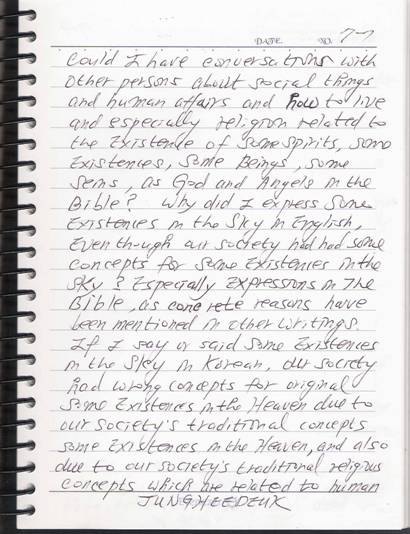 DATE. NO. 7-7
could I have conversations with
other persons about social things
and human affairs and how to live
and especially religion related to
the Existence of some spirits, some
Existences, some Beings, some
Seins, as God and Angels in the
Bible? Why did I express some
Existences in the Sky in English,
Even though our society had had some
concepts for some Existences in the
Sky? Especially Expressions in The
Bible, as concrete reasons have
been mentioned in other writings.
If I say or said some Existences
in the Sky in Korean, our society
had wrong concepts for original
Some Existences in the Heaven due to
our society's traditional concepts
some Existences in the Heaven, and also
due to our society's traditional religious
concepts which are related to human
JUNGHEEDEUK